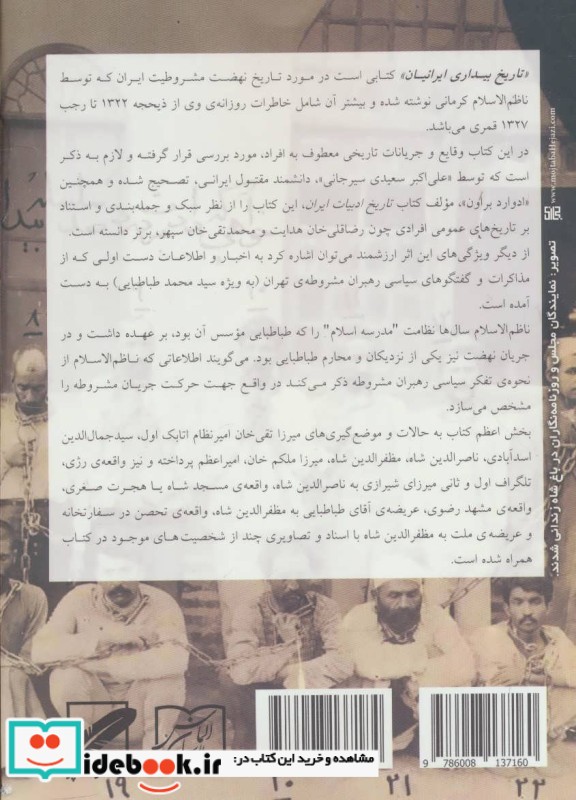 «تاریخ بیداری ایرانیان» کتابی است در مورد تاریخ نهضت مشروطیت ایران که توسط
ناظم‌الاسلام کرمانی نوشته شده و بیشتر آن شامل خاطرات روزانه‌ی وی از ذیحجه ۱۳۲۲ تا رجب
۱۳۲۷ قمری می‌باشد.
در این کتاب وقایع و جریانات تاریخی معطوف به افراد، مورد بررسی قرار گرفته و لازم به ذکر
است که توسط «علی‌اکبر سعیدی سیرجانی»، دانشمند مقتول ایرانی، تصحیح شده و همچنین
«ادوارد براون»، مؤلف کتاب تاریخ ادبیات ایران، این کتاب را از نظر سبک و جمله‌بندی و استناد
بر تاریخ‌های عمومی افرادی چون رضاقلی‌خان هدایت و محمدتقی‌خان سپهر، برتر دانسته است.
از دیگر ویژگی‌های این اثر ارزشمند می‌توان اشاره کرد به اخبار و اطلاعات دست اولی که از
مذاکرات و گفتگوهای سیاسی رهبران مشروطه‌ی تهران (به ویژه سید محمد طباطبایی) به دست
آمده است.
ناظم‌الاسلام سال‌ها نظامت "مدرسه اسلام" را که طباطبایی مؤسس آن بود، بر عهده داشت و در
جریان نهضت نیز یکی از نزدیکان و محارم طباطبایی بود. می‌گویند اطلاعاتی که ناظم‌الاسلام از
نحوه‌ی تفکر سیاسی رهبران مشروطه ذکر می‌کند در واقع جهت حرکت جریان مشروطه را
مشخص می‌سازد.
بخش اعظم کتاب به حالات و موضع‌گیری‌های میرزا تقی‌خان امیرنظام اتابک اول، سیدجمال‌الدین
اسدآبادی، ناصرالدین شاه، مظفرالدین شاه، میرزا ملکم خان، امیراعظم پرداخته و نیز واقعه‌ی رژی،
تلگراف اول و ثانی میرزای شیرازی به ناصرالدین شاه، واقعه‌ی مسجد شاه یا هجرت صغری،
واقعه‌ی مشهد رضوی، عریضه‌ی آقای طباطبایی به مظفرالدین شاه، واقعه‌ی تحصن در سفارتخانه
و عریضه‌ی ملت به مظفرالدین شاه با اسناد و تصاویری چند از شخصیت‌های موجود در کتاب
همراه شده است.
www.mojtabaHejazi.com
تصویر: نمایندگان مجلس و روزنامه‌نگاران در باغ شاه زندانی شدند.
۸
مشاهده و خرید این کتاب در:
idebook.ir
9 786008 137160
۱۹
۱۰
۲۱
۲۲